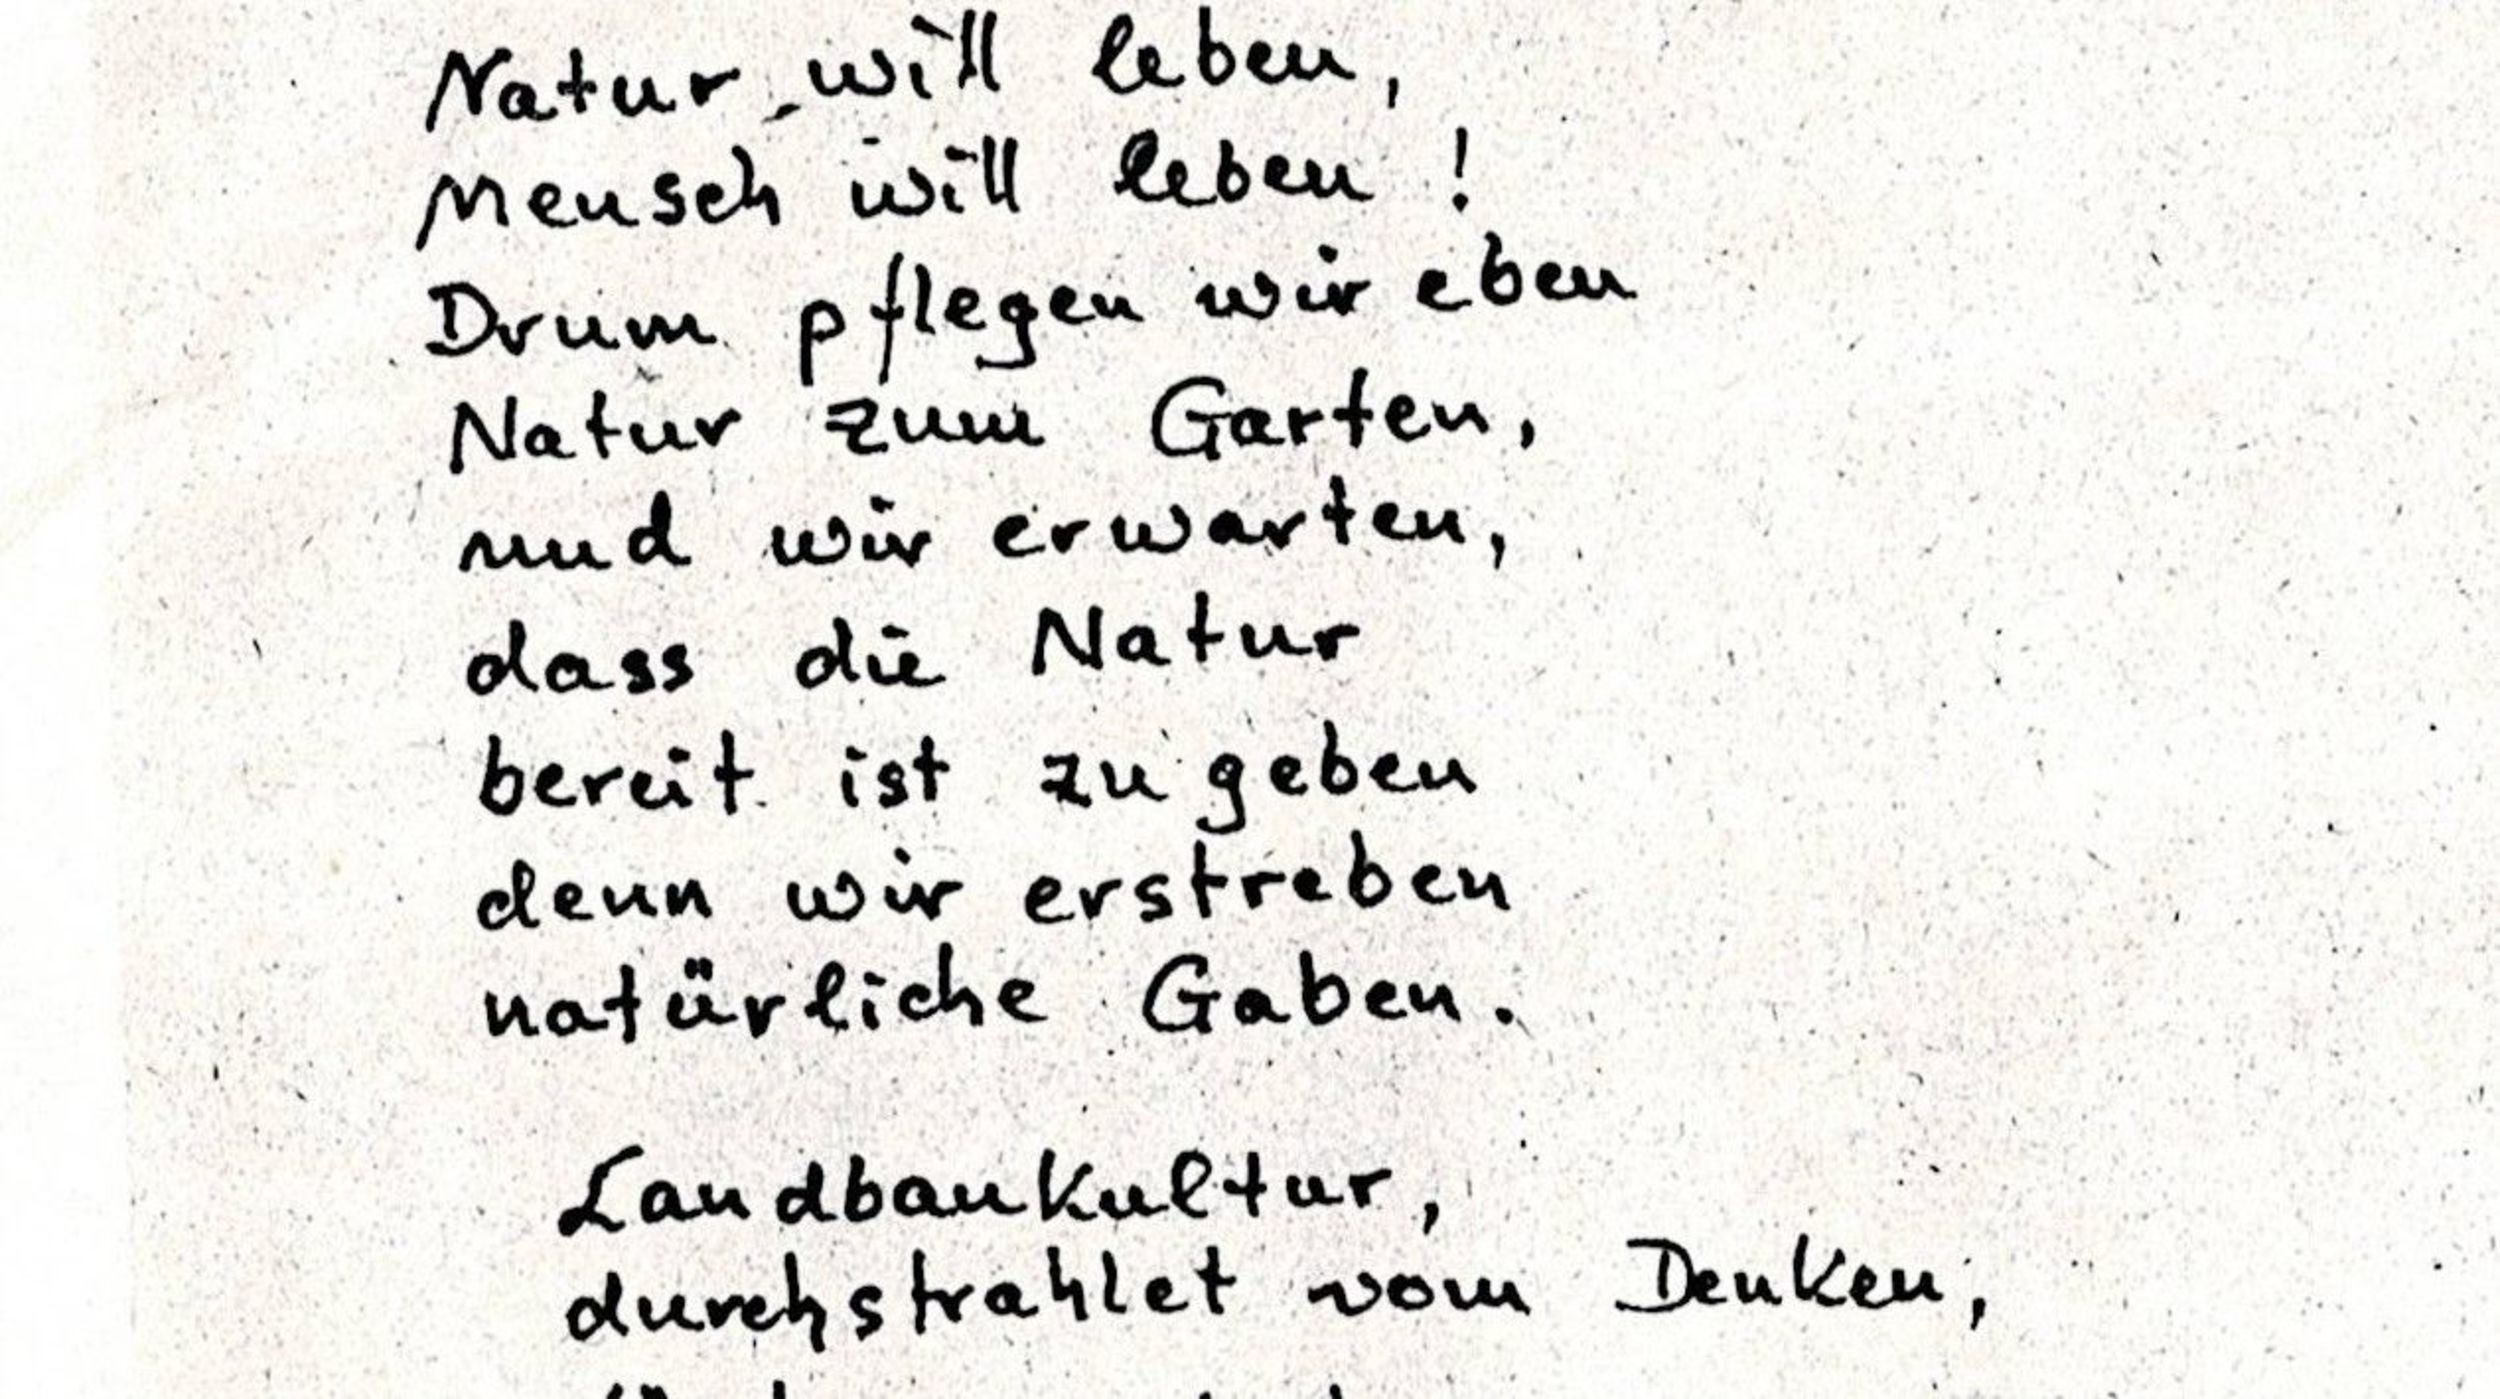 Natur will leben,
Mensch will leben !
Drum pflegen wir eben
Natur zum Garten,
und wir erwarten,
dass die Natur
bereit ist zu geben
denn wir erstreben
natürliche Gaben.
Landbaukultur,
durchstrahlet vom Denken,